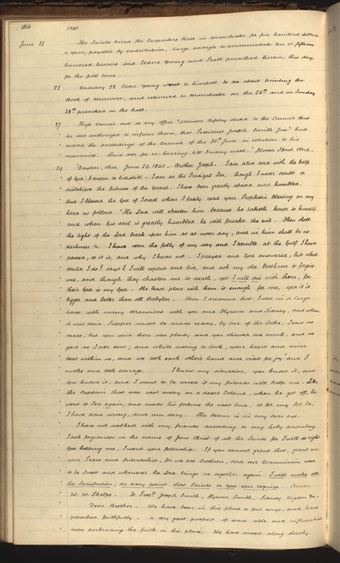 1840
June 21 The Saints hired the Carpenters Hall in Manchester for five hundred dollars
a year, payable by contribution, large enough to accommodate six or fifteen
hundred hearers and Elders Young and preached therein, this day,
for the first time.
22 Monday 22 Elder Young went to Liverpool to see about printing the
Book of Mormon, and returned to Manchester on the 26th and on Sunday
28th preached in the hall.
27 High Council met at my office
be authorized to inform them, that President Joseph Smith Jun. had
the proceedings of the Council of the 20th June, in relation to his
Laid over for a hearing till Friday next. Hosea Stout Clerk.
29 "Dayton, Ohio, June 29, 1840. Brother Joseph: I am alive and with the help
of God I mean to live still. I am as the Prodigal Son, though I never doubt or
disbelieve the fulness of the Gospel. I have been greatly abased and humbled,
and I blessed the God of Israel when I lately read your Prophetic blessing on my
head as follows "The Lord will chasten him because he taketh honor to himself
and when his soul is greatly humbled he will forsake the evil. Then shall
the light of the Lord break upon him as at noon day, and in him shall be no
darkness &c. I have seen the folly of my way and I tremble at the gulf I have
passed, so it is, and why I know not. I prayed and God answered, but what
could I do? says I I will repent and live, and ask my old brethren to forgive
me, and though they chasten me to death, yet I will die with them, for
their God is my God. The least place with them is enough for me, yea it is
bigger and better than all Babylon. Then I dreamed that I was in a large
house with many mansions, with you and Hyrum and Sidney, and when
it was said Supper must be made ready, by one of the Cooks, I saw no
meat, but you said there was plenty, and you showed me much, and as
good as I ever saw; and while cutting to cook, your heart and mine
beat within us, and we took each others hand and cried for joy and I
awoke and took courage. I know my situation, you know it, and
God knows it, and I want to be saved if my friends will help me. Like
the Captain that was cast away on a desert Island, when he got off, he
went to Sea again, and made his fortune the next time, so let my lot be.
I have done wrong, and am sorry. The beam is in my own eye.
I have not walked with my friends according to my holy anointing,
I ask forgiveness in the name of Jesus Christ of all the Saints for I will do right
God helping me, I want your fellowship. If you cannot grant that, grant me
your peace and friendship, for we are brethren, and our Communion used
to be sweet and whenever the Lord brings us together again I will make all
the Satisfaction, on every point that Saints or God can require. Amen.
W. W. Phelps. To Prest Joseph Smith, Hyrum Smith, Sidney Rigdon &c.
Dear Brother. We have been in this place a few days, and have
preached faithfully. a very great prospect of some able and influential
men embracing the faith in this place. We have moved along slowly